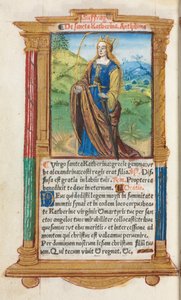 De sancta Katherina. Antiphona
Virgo sancta Katherina: grecie gemma: vr
be alexandrina: costi regis erat filia. Dif
fusa est gratia in labiis tuis. Propterea
benedixit te deus in eternum. Oratio.
Deus qui dedisti legem moysi in summitate
montis synai et in eodem loco corpus
te Katherine virginis martyris tue per san
ctos angelos tuos collocasti: tribue
quesumus vt eius meritis et intercessione ad
montem qui christus est valeamus peruenire.
Per dominum nostrum iesum christum filium tu
um. Qui tecum viuit et regnat.